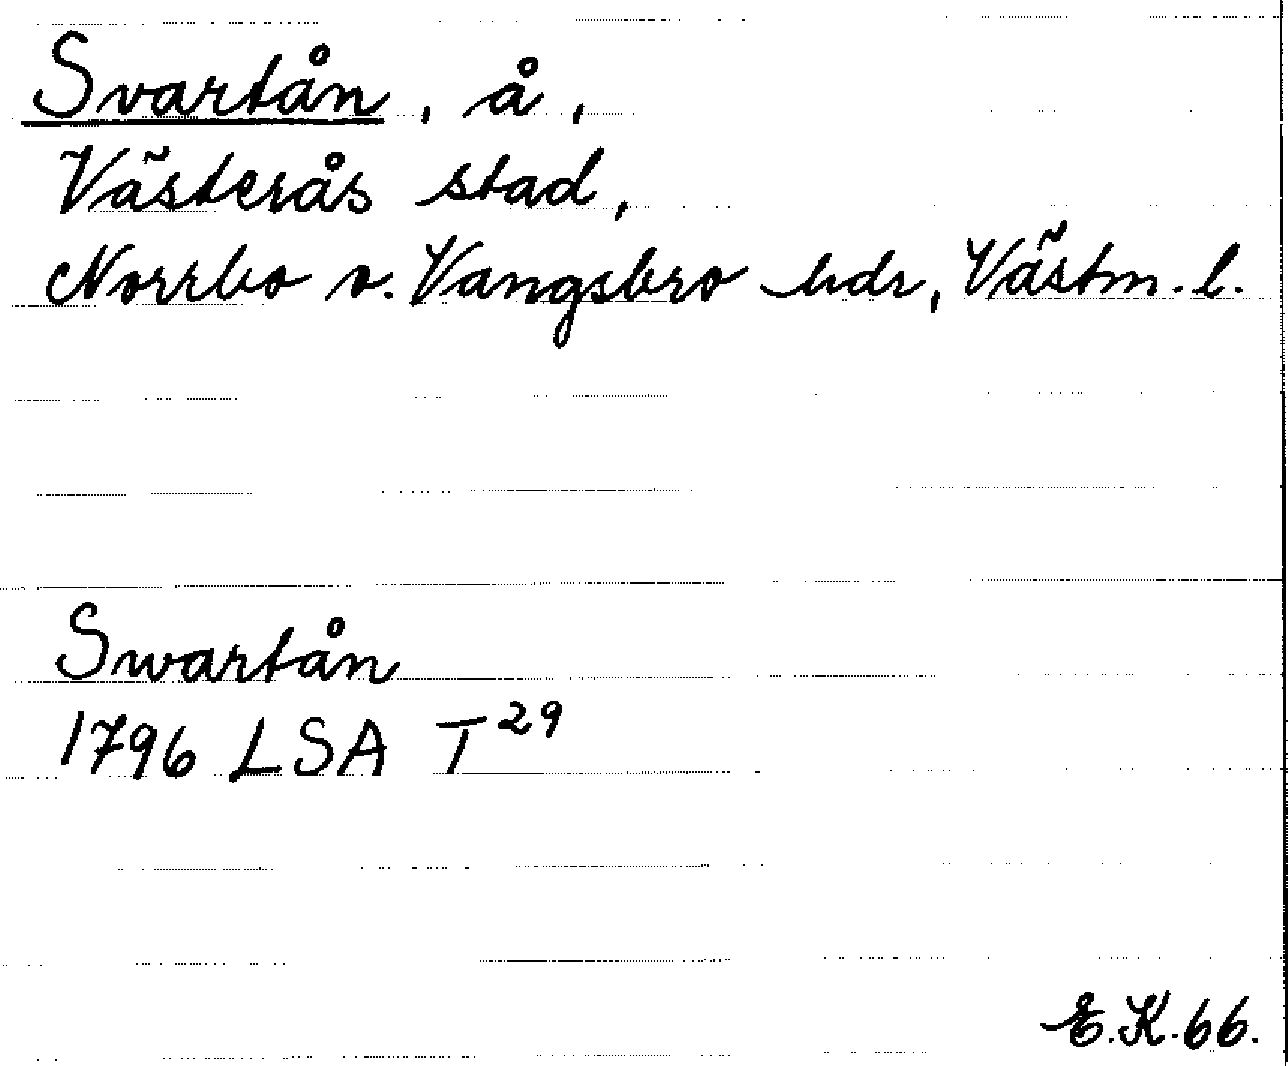 Svartån, å,
Västerås stad,
Norrbo o. Vangsbro hdr, Västm. l.
Swartån
1796 LSA T 29
E.K.66.